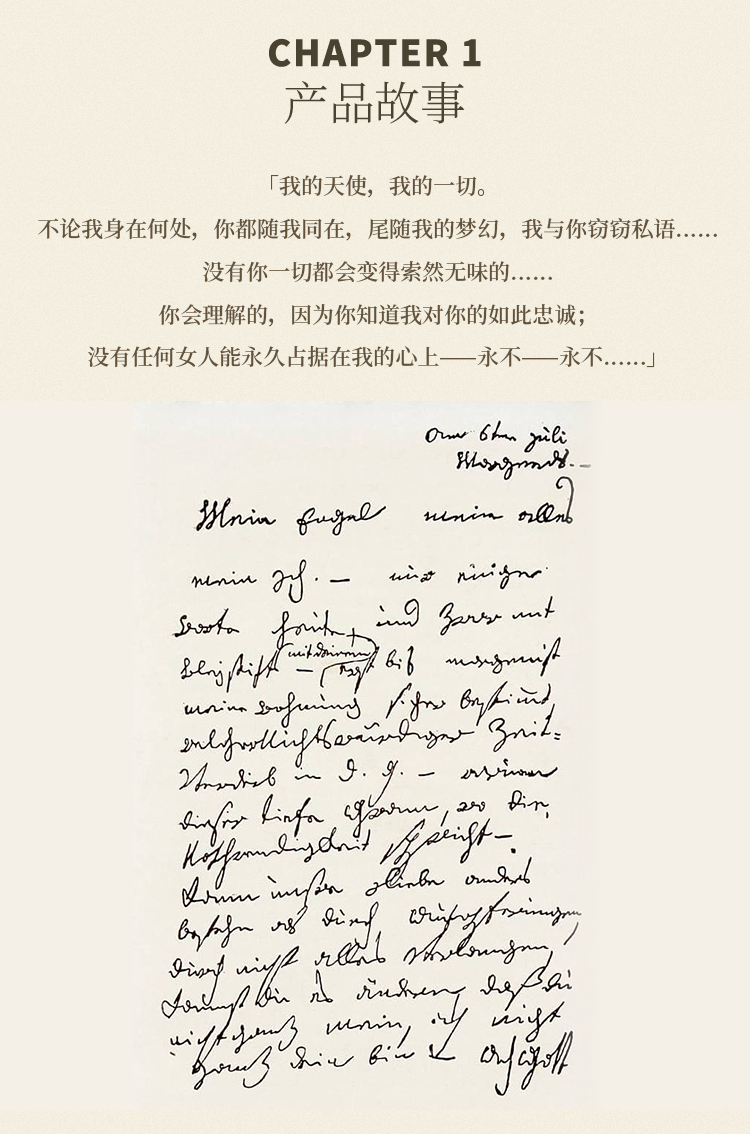 CHAPTER 1
产品故事
「我的天使，我的一切。
不论我身在何处，你都随我同在，尾随我的梦幻，我与你窃窃私语……
没有你一切都会变得索然无味的……
你会理解的，因为你知道我对你的如此忠诚；
没有任何女人能永久占据在我的心上——永不——永不……」
am 6ten juli
Morgends. –
Mein Engel mein alles
mein Ich. — nur einige
Worte heute, und zwar mit
bleystift — mit deinem
bis morgen ist
meine Wohnung sicher bestimt,
welcher Zeit-
Verderb in d. g. — warum
dieser tiefe gram, wo die
Nothwendigkeit spricht —
Kann unsre Liebe anders
bestehn als durch aufopferungen,
durch nicht alles verlangen,
kannst du es ändern, daß du
nicht ganz mein, ich nicht
ganz dein bin — Ach Gott